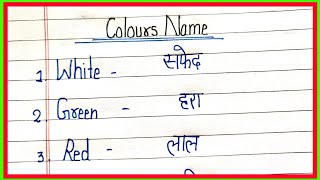 Colours Name
1. White - सफेद
2. Green - हरा
3. Red - लाल